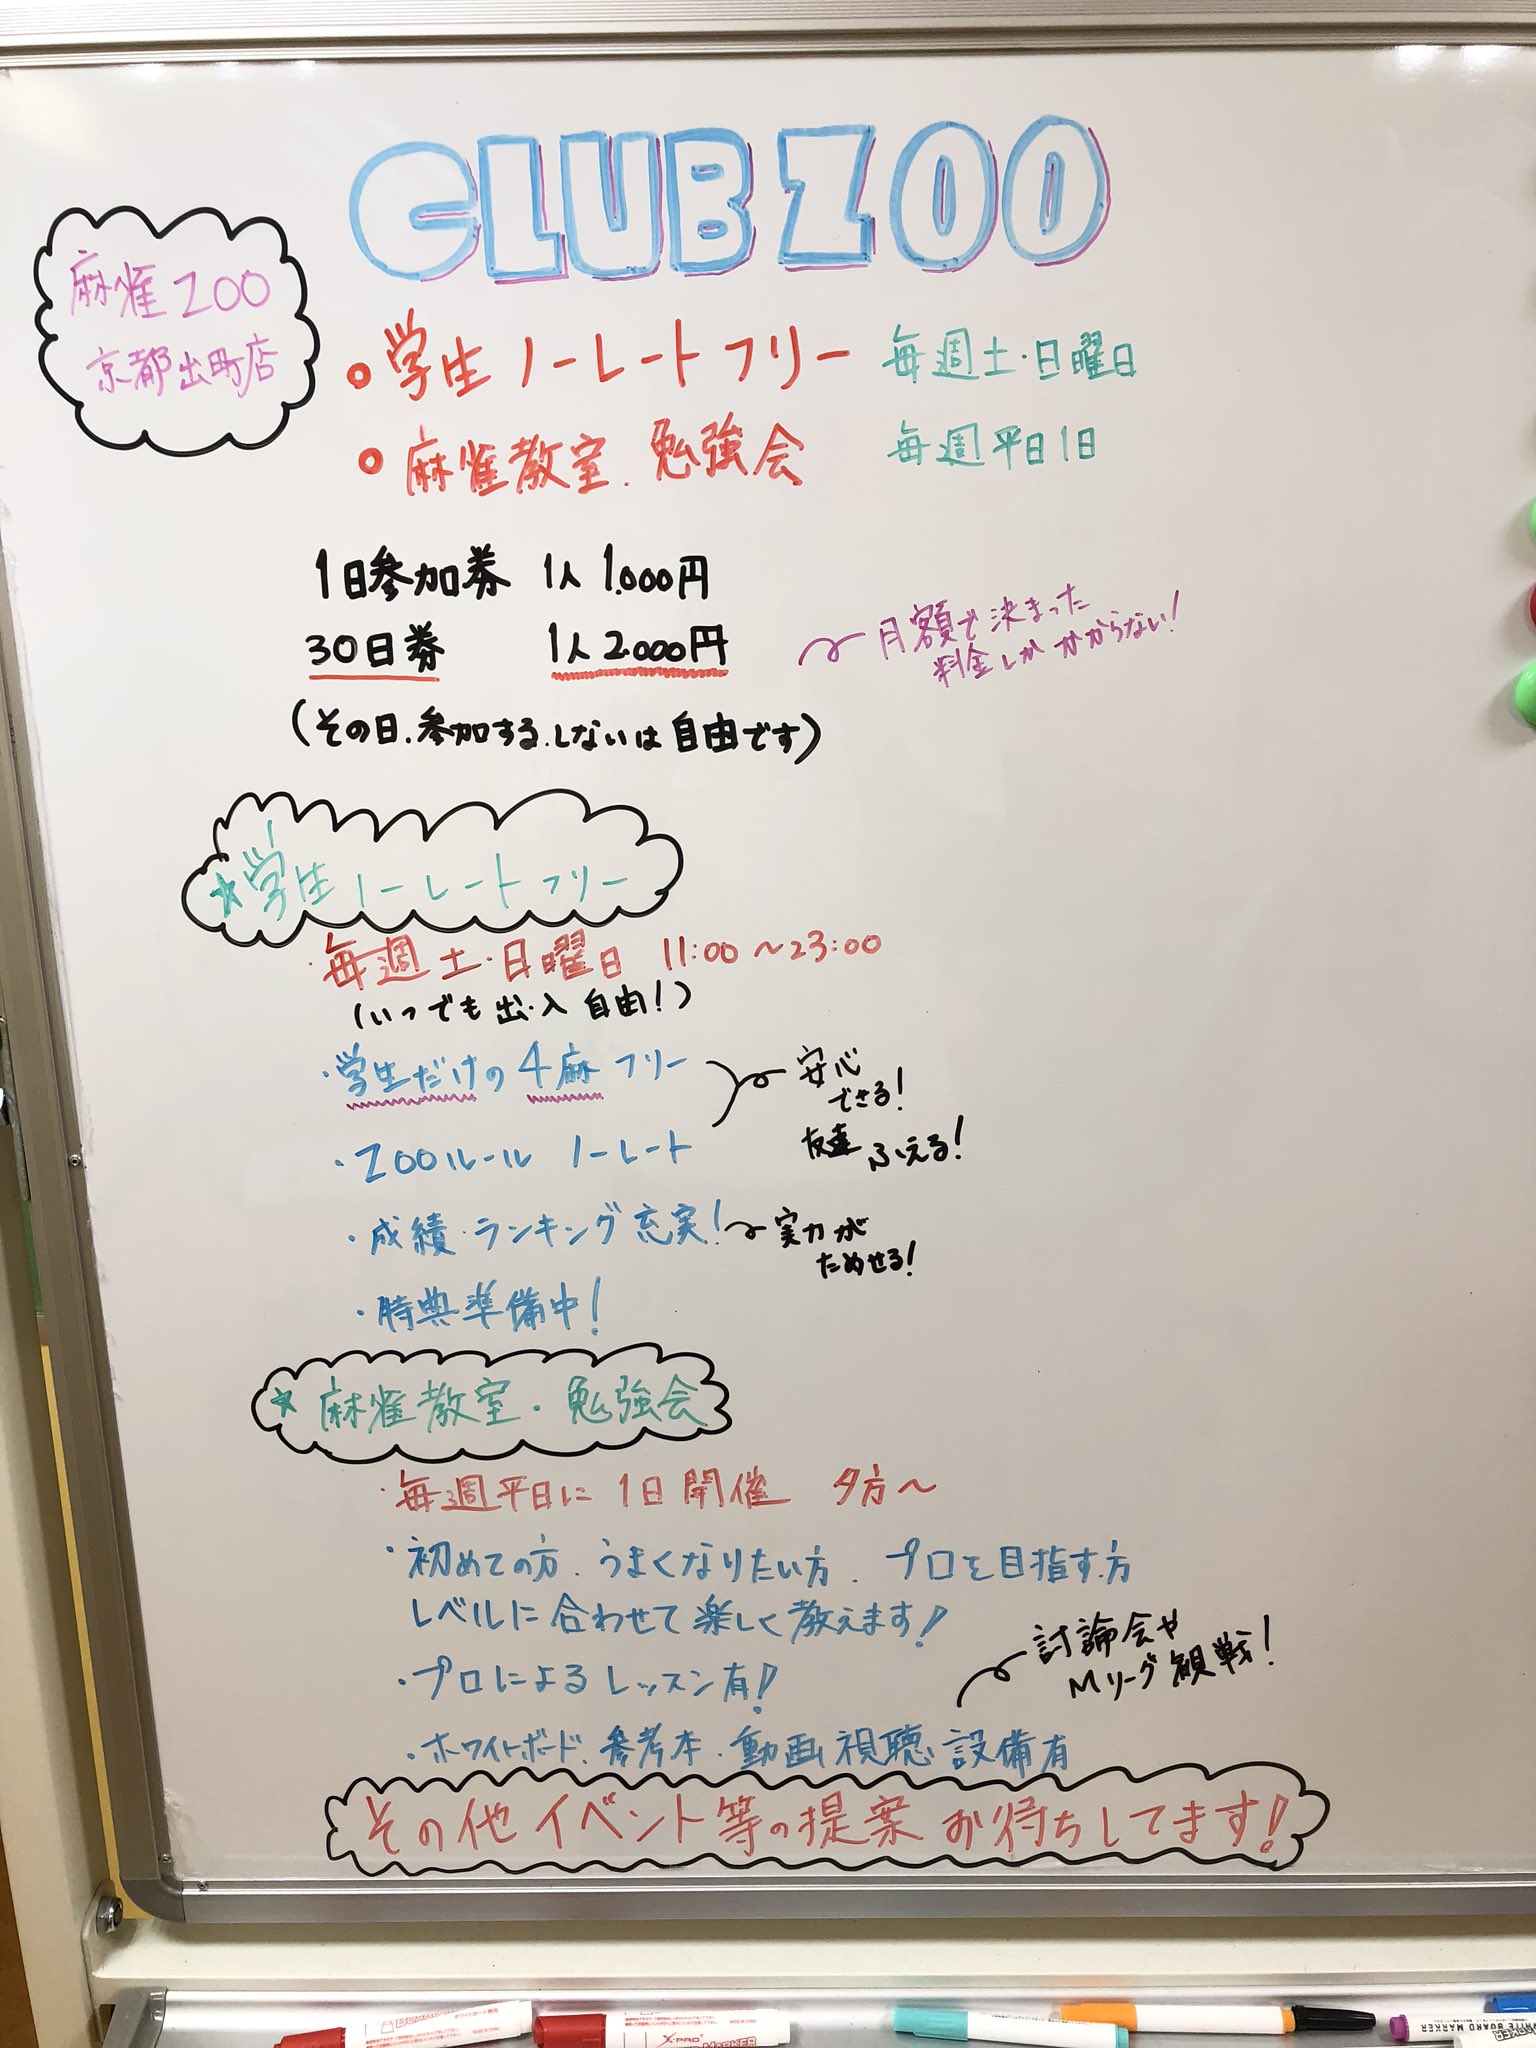 CLUB ZOO
麻雀ZOO
京都出町店
学生ノーレートフリー 毎週土・日曜日
麻雀教室.勉強会 毎週平日1日
1日参加券 1人 1.000円
30日券 1人 2.000円
月額で決まった
料金しかかからない!
(その日.参加する.しないは自由です)
☆学生ノーレートフリー
・毎週土・日曜日 11:00〜23:00
(いつでも出・入自由!)
・学生だけの4麻フリー
安心
できる!
・ZOOルール ノーレート
友達ふえる!
・成績・ランキング充実!
実力が
ためせる!
・特典準備中!
☆麻雀教室・勉強会
・毎週平日に1日開催 夕方〜
・初めての方.うまくなりたい方.プロを目指す方
レベルに合わせて楽しく教えます!
・プロによるレッスン有!
討論会や
Mリーグ観戦!
・ホワイトボード.参考本・動画視聴設備有
その他イベント等の提案お待ちしてます!
X-PRO MARKER
WHITE BOARD MARKER